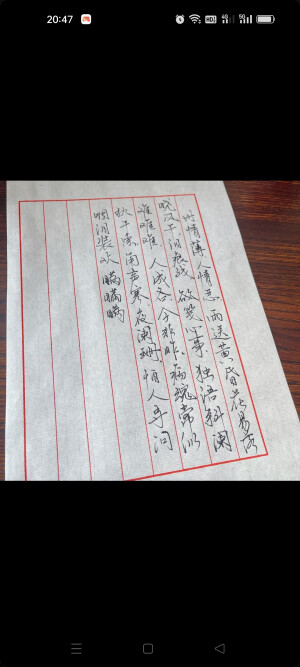 20:47
世情薄人情恶雨送黄昏花易落
晓风干泪痕残欲笺心事独语斜阑
难难难 人成各今非昨病魂常似
秋千索角声寒夜阑珊怕人寻问
咽泪装欢 瞒瞒瞒